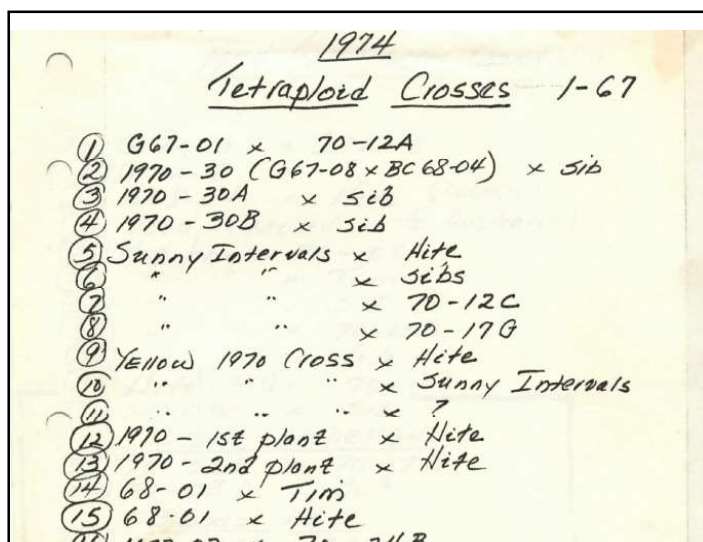 1974
Tetraploid Crosses 1-67
① G67-01 x 70-12A
② 1970-30 (G67-08 x BC68-04) x sib
③ 1970-30A x sib
④ 1970-30B x sib
⑤ Sunny Intervals x Hite
⑥ " " x sibs
⑦ " " x 70-12C
⑧ " " x 70-17G
⑨ Yellow 1970 Cross x Hite
⑩ " " " x Sunny Intervals
⑪ " " " x ?
⑫ 1970-1st plant x Hite
⑬ 1970-2nd plant x Hite
⑭ 68-01 x Tim
⑮ 68-01 x Hite